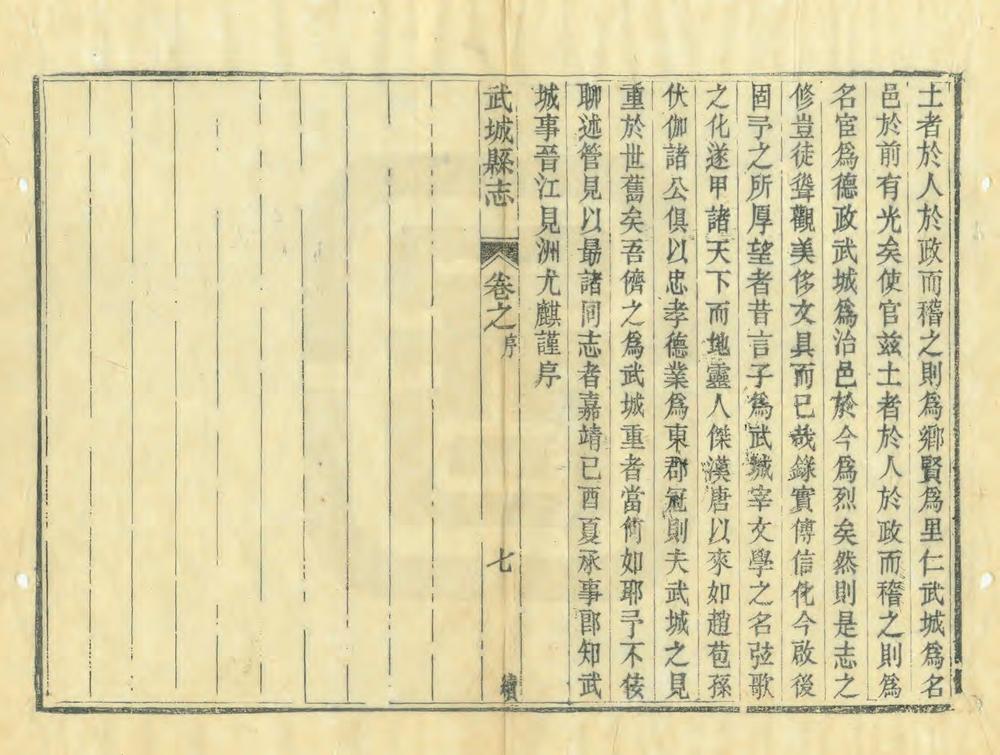 土者於人於政而稽之則爲鄉賢爲里仁武城爲名
邑於前有光矣使官玆土者於人於政而稽之則爲
名宦爲德政武城爲治邑於今爲烈矣然則是志之
修豈徒聳觀美侈文具而已哉錄實傳信化今啟後
固予之所厚望者昔言子爲武城宰文學之名弦歌
之化遂甲諸天下而地靈人傑漢唐以來如趙苞孫
伏伽諸公俱以忠孝德業爲東郡冠則夫武城之見
重於世舊矣吾儕之爲武城重者當何如耶予不佞
聊述管見以朂諸同志者嘉靖己酉夏承事郎知武
城事晉江見洲尤麒謹序
武城縣志 卷之序 七 續